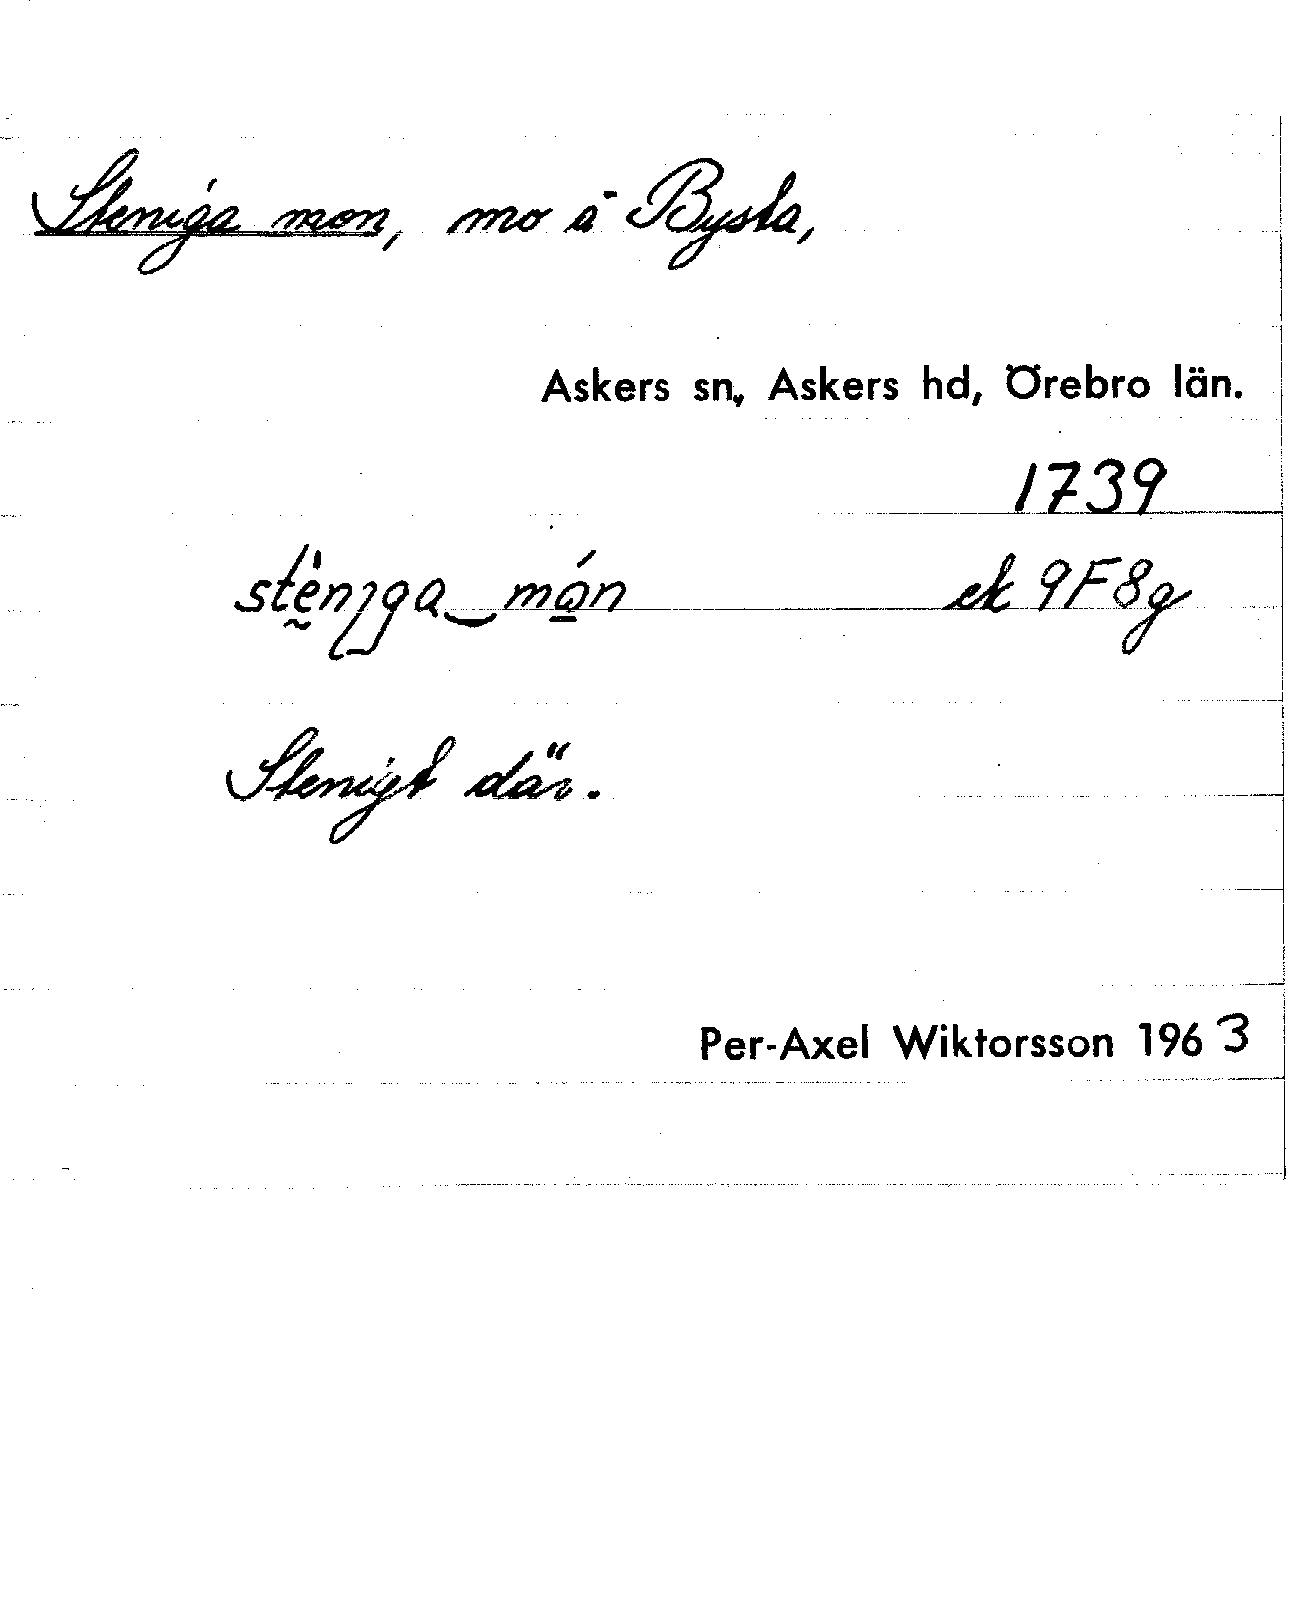 Steniga mon, mo å Bysta,
Askers sn, Askers hd, Örebro län.
1739
stèn̠ga‿món ek 9F8g
Stenigt där.
Per-Axel Wiktorsson 1963